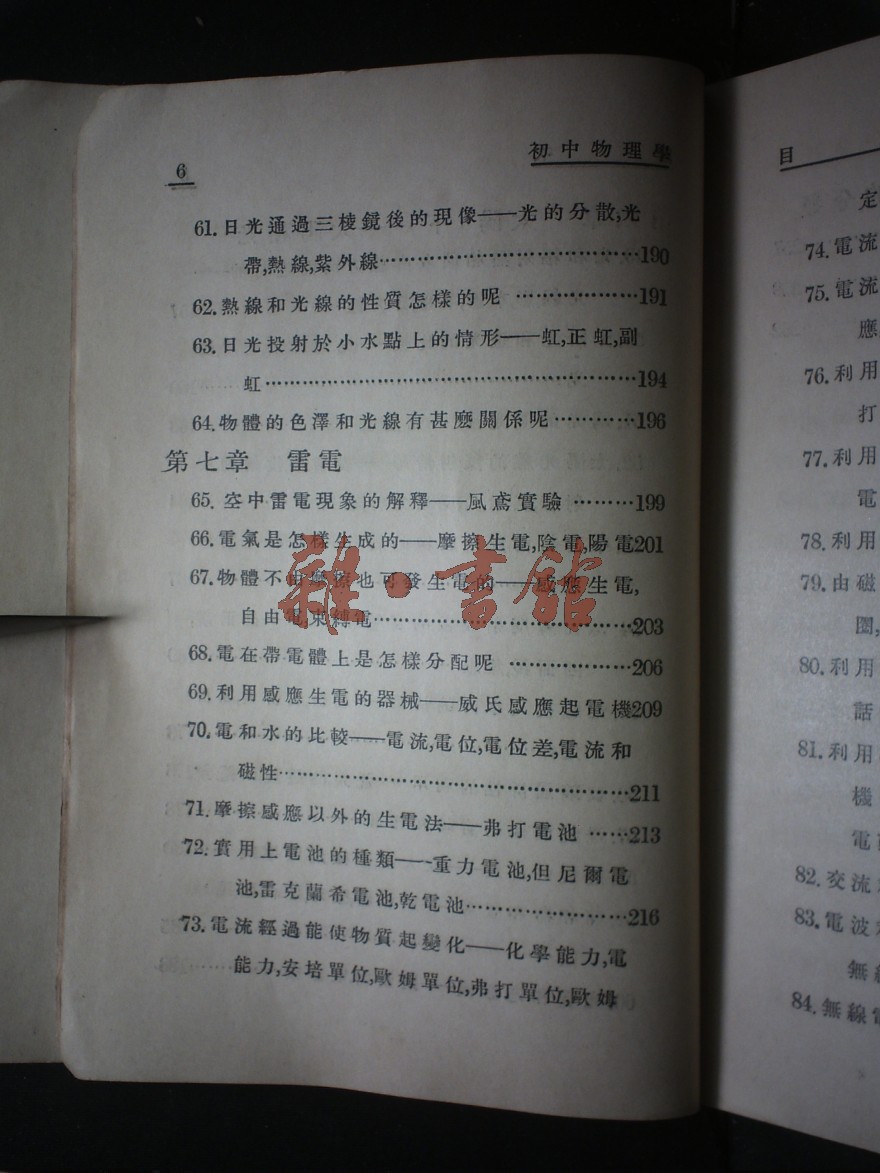 6
初中物理學
61.日光通過三棱鏡後的現像——光的分散,光
帶,熱線,紫外線……………………………190
62.熱線和光線的性質怎樣的呢 ………………191
63.日光投射於小水點上的情形——虹,正虹,副
虹……………………………………………194
64.物體的色澤和光線有甚麼關係呢…………196
第七章 雷電
65.空中雷電現象的解釋——風鳶實驗 ………199
66.電氣是怎樣生成的——摩擦生電,陰電,陽電201
67.物體不由摩擦也可發生電的——感應生電,
自由電,束縛電………………………………203
68.電在帶電體上是怎樣分配呢 ………………206
69.利用感應生電的器械——威氏感應起電機209
70.電和水的比較——電流,電位,電位差,電流和
磁性…………………………………………211
71.摩擦感應以外的生電法——弗打電池 ……213
72.實用上電池的種類——重力電池,但尼爾電
池,雷克蘭希電池,乾電池…………………216
73.電流經過能使物質起變化——化學能力,電
能力,安培單位,歐姆單位,弗打單位,歐姆
雜·書館
目
定
74.電流
75.電流
應
76.利用
打
77.利用
電
78.利用
79.由磁
圈,
80.利用
話
81.利用
機
電
82.交流
83.電波
無
84.無線